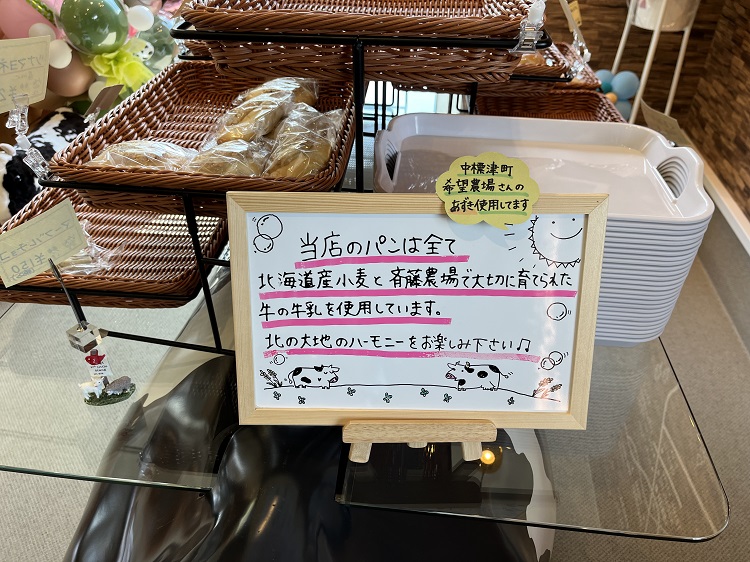 中標津町
希望農場さんの
あずき使用してます
当店のパンは全て
北海道産小麦と斉藤農場で大切に育てられた
牛の牛乳を使用しています。
北の大地のハーモニーをお楽しみ下さい♫